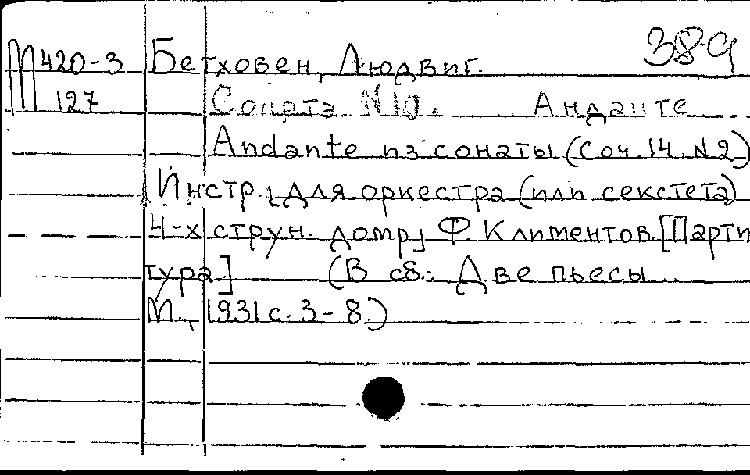 389
М420-3 Бетховен, Людвиг.
127 Соната N10. Анданте
Andante из сонаты (Соч. 14 N2)
Инстр. для оркестра (или секстета)
4-х струн. домр Ф. Климентов. [Парти
тура] (В сб.: Две пьесы
М., 1931 с. 3-8.)